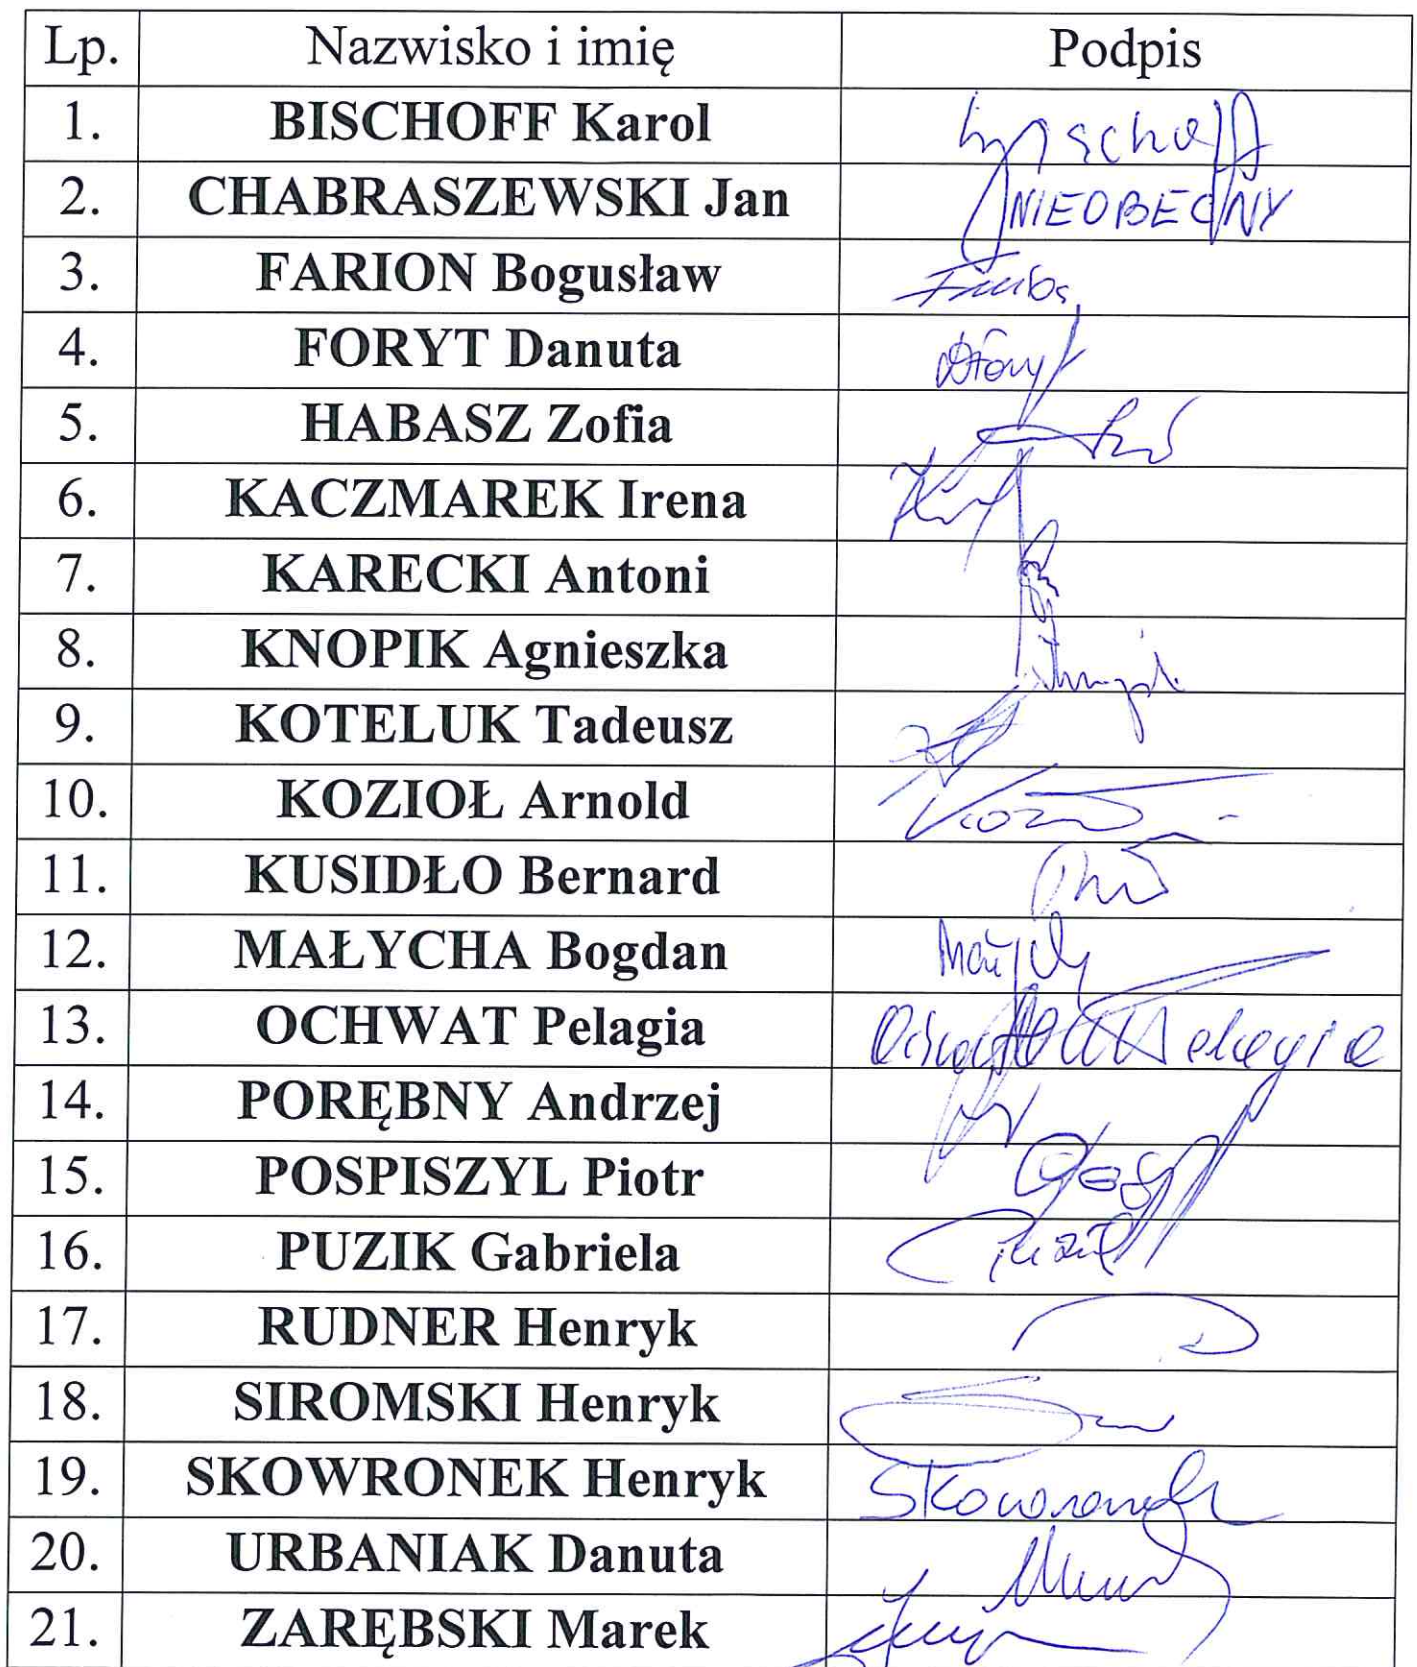 Lp. Nazwisko i imię Podpis
1. BISCHOFF Karol Bischoff
2. CHABRASZEWSKI Jan NIEOBECNY
3. FARION Bogusław
4. FORYT Danuta
5. HABASZ Zofia
6. KACZMAREK Irena
7. KARECKI Antoni
8. KNOPIK Agnieszka
9. KOTELUK Tadeusz
10. KOZIOŁ Arnold
11. KUSIDŁO Bernard
12. MAŁYCHA Bogdan
13. OCHWAT Pelagia Ochwat Pelagia
14. PORĘBNY Andrzej
15. POSPISZYL Piotr
16. PUZIK Gabriela
17. RUDNER Henryk
18. SIROMSKI Henryk
19. SKOWRONEK Henryk Skowronek
20. URBANIAK Danuta
21. ZARĘBSKI Marek